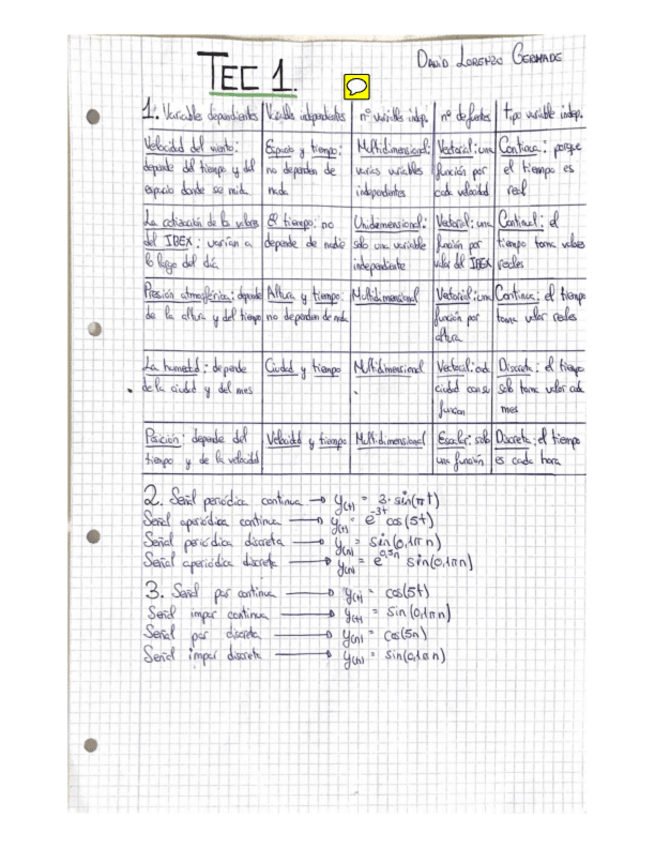 DAVID LORENZO GERMADE
TEC 1.
1. Variables dependientes | Variables independientes | nº variables indep. | nº de fuentes | tipo variable indep.
Velocidad del viento: | Espacio y tiempo: | Multidimensional: | Vectorial: una | Continua: porque
depende del tiempo y del | no dependen de | varias variables | función por | el tiempo es
espacio donde se mida | nada | independientes | cada velocidad | real
La cotización de los valores | El tiempo: no | Unidimensional: | Vectorial: una | Continua: el
del IBEX: varían a | depende de nadie | solo una variable | función por | tiempo toma valores
lo largo del día | independiente | valor del IBEX | reales
Presión atmosférica: depende | Altura y tiempo: | Multidimensional | Vectorial: una | Continua: el tiempo
de la altura y del tiempo | no dependen de nada | función por | toma valor reales
altura
La humedad: depende | Ciudad y tiempo | Multidimensional | Vectorial: cada | Discreta: el tiempo
de la ciudad y del mes | ciudad con su | solo toma valor cada
función | mes
Posición: depende del | Velocidad y tiempo | Multidimensional | Escalar: solo | Discreta: el tiempo
tiempo y de la velocidad | una función | es cada hora
2. Señal periódica continua → y(t) = 3·sin(πt)
Señal aperiódica continua → y(t) = e^-3t cos(5t)
Señal periódica discreta → y(n) = sin(0,1πn)
Señal aperiódica discreta → y(n) = e^0,5n sin(0,1πn)
3. Señal par continua → y(t) = cos(5t)
Señal impar continua → y(t) = sin(0,1πn)
Señal par discreta → y(n) = cos(5n)
Señal impar discreta → y(n) = sin(0,1πn)